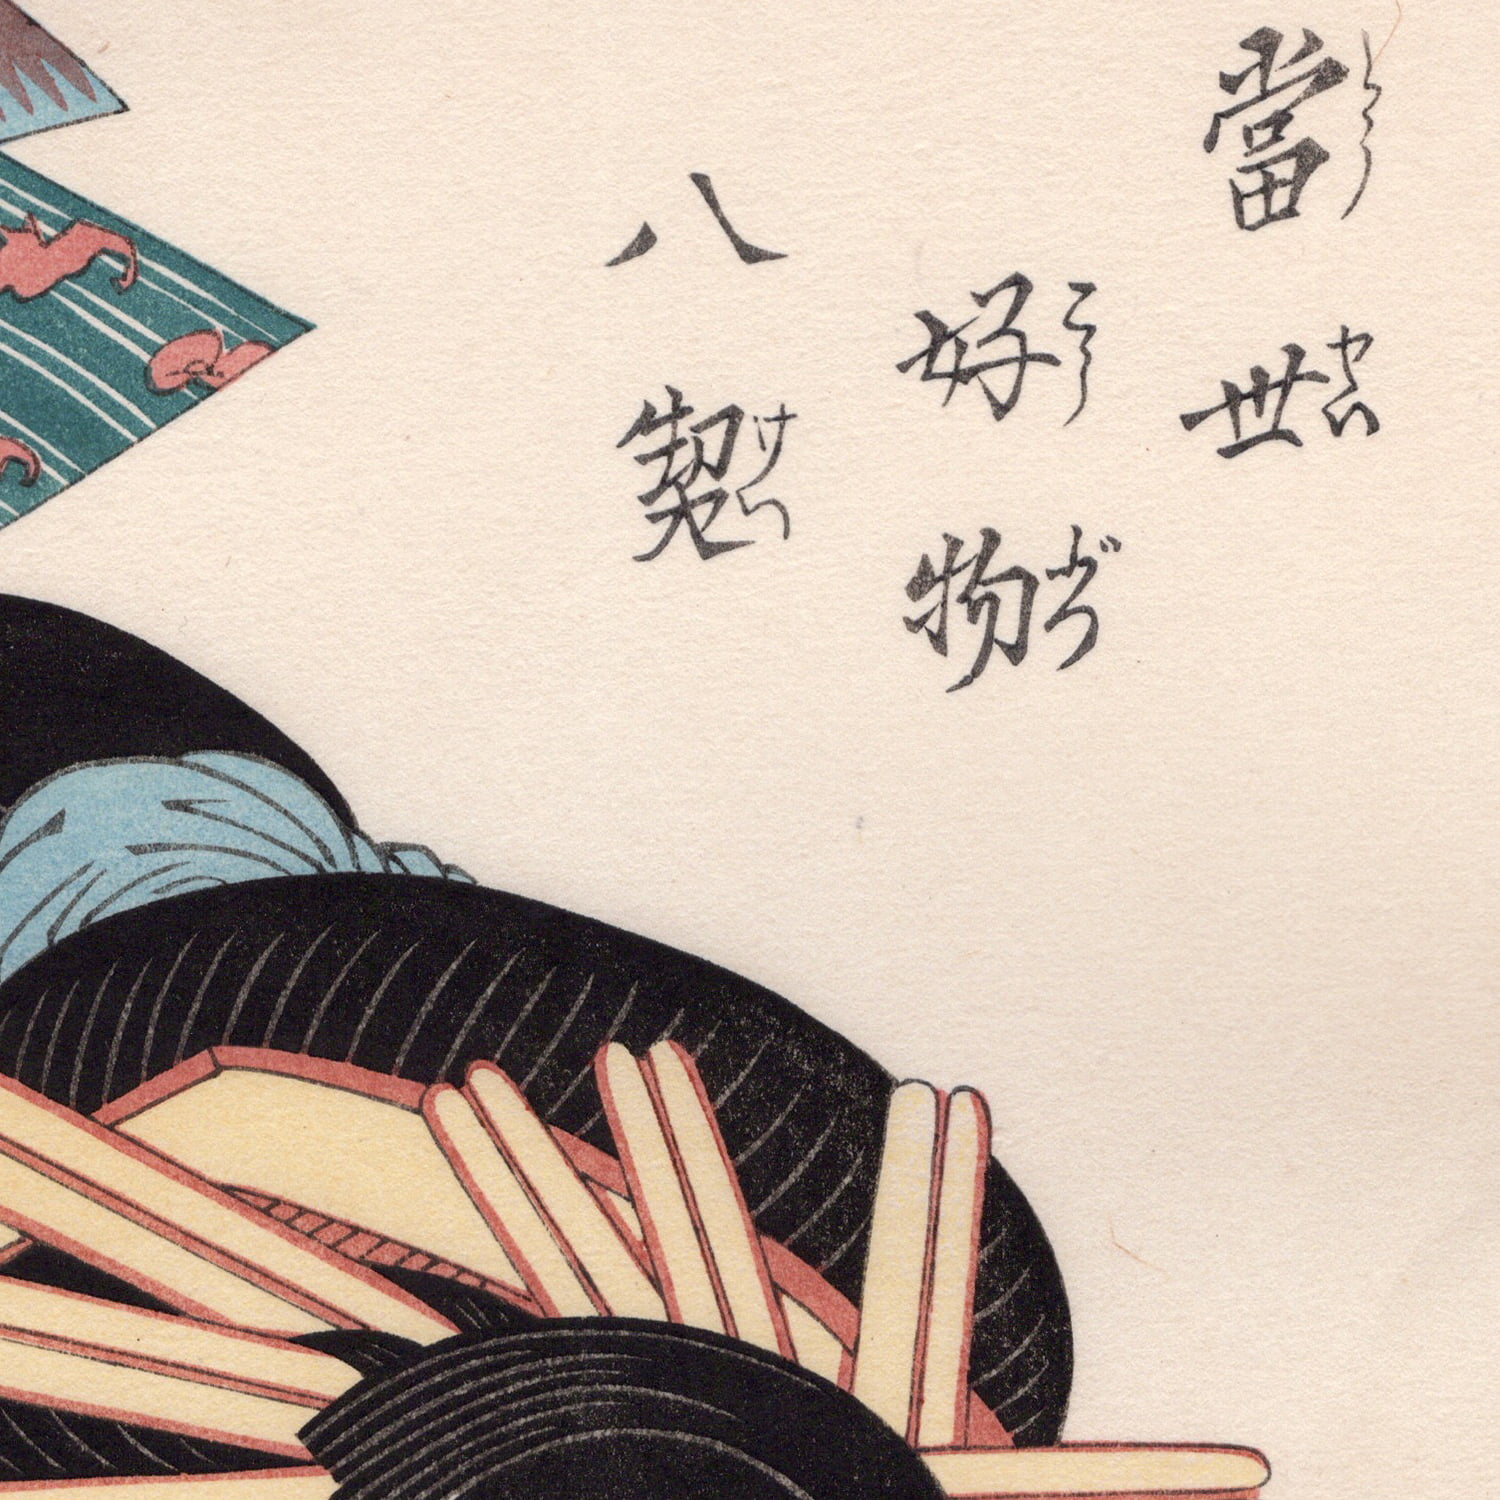 當世
とうせい
好物
こうぶつ
八契
けい